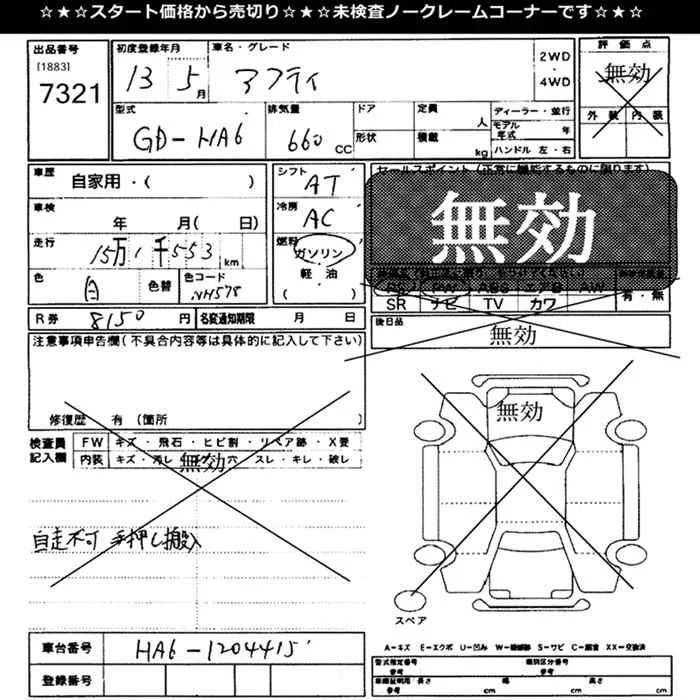 ☆★☆★スタート価格から売切り☆★☆★未検査ノークレームコーナーです☆★☆
出品番号
[1883]
7321
初度登録年月
13 5月
車名・グレード
アクティ
2WD
・
4WD
評価点
無効
外装 内装
型式
GD-HA6
排気量
660 CC
ドア
形状
定員
人
積載
kg
ディーラー・並行
モデル年式 年
ハンドル 左・右
車歴
自家用・( )
車検
年 月( 日)
走行
15万1千553 km
色
白
色替
色コード
NH578
シフト
AT
冷房
AC
燃料
ガソリン
軽油
( )
セールスポイント (正常に機能するものに限ります)
無効
PS PW ABS エアB AW
SR ナビ TV カワ
有・無
R券 8150 円
名変通知期限 月 日
後日品
無効
注意事項申告欄(不具合内容等は具体的に記入して下さい)
修復歴 有 (箇所 )
検査員記入欄
FW キズ・飛石・ヒビ割・リペア跡・X要
内装 キズ・汚レ・穴 スレ・キレ・破レ
無効
自走不可 手押し搬入
無効
スペア
車台番号
HA6-1204415
登録番号
A=キズ E=エクボ U=凹み W=補修跡 S=サビ C=腐食 XX=交換済
型式指定番号
参考
類別区分番号
参考
車検証明用・長さ
参考 cm
幅
cm
高さ
cm